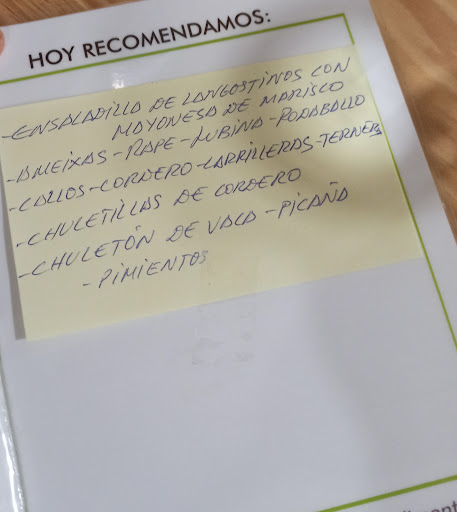 HOY RECOMENDAMOS:
-ENSALADILLA DE LANGOSTINOS CON
MAYONESA DE MARISCO
-AMEIXAS-RAPE-LUBINA-RODABALLO
-CALLOS-CORDERO-CARRILLERAS-TERNERA
-CHULETILLAS DE CORDERO
-CHULETÓN DE VACA-PICAÑA
-PIMIENTOS